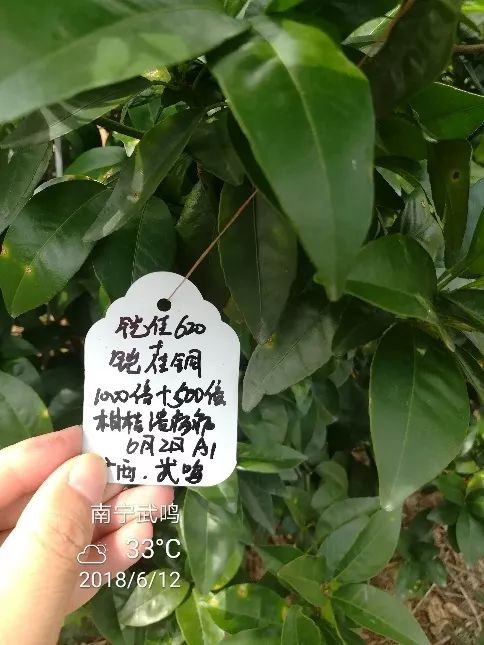 铠佳620
+
铠佳铜
1000倍+500倍
柑桔溃疡病
6月2日 A1
广西.武鸣
南宁武鸣
33°C
2018/6/12